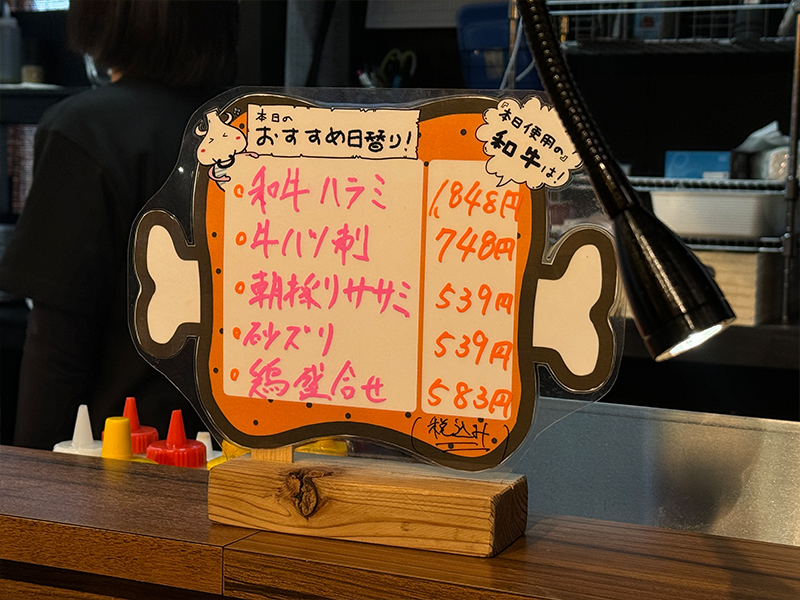 本日の
おすすめ日替り!
『本日使用の』
和牛は!
。和牛ハラミ 1,848円
。牛ハツ刺 748円
。朝採りササミ 539円
。砂ズリ 539円
。鶏盛合せ 583円
(税込み)